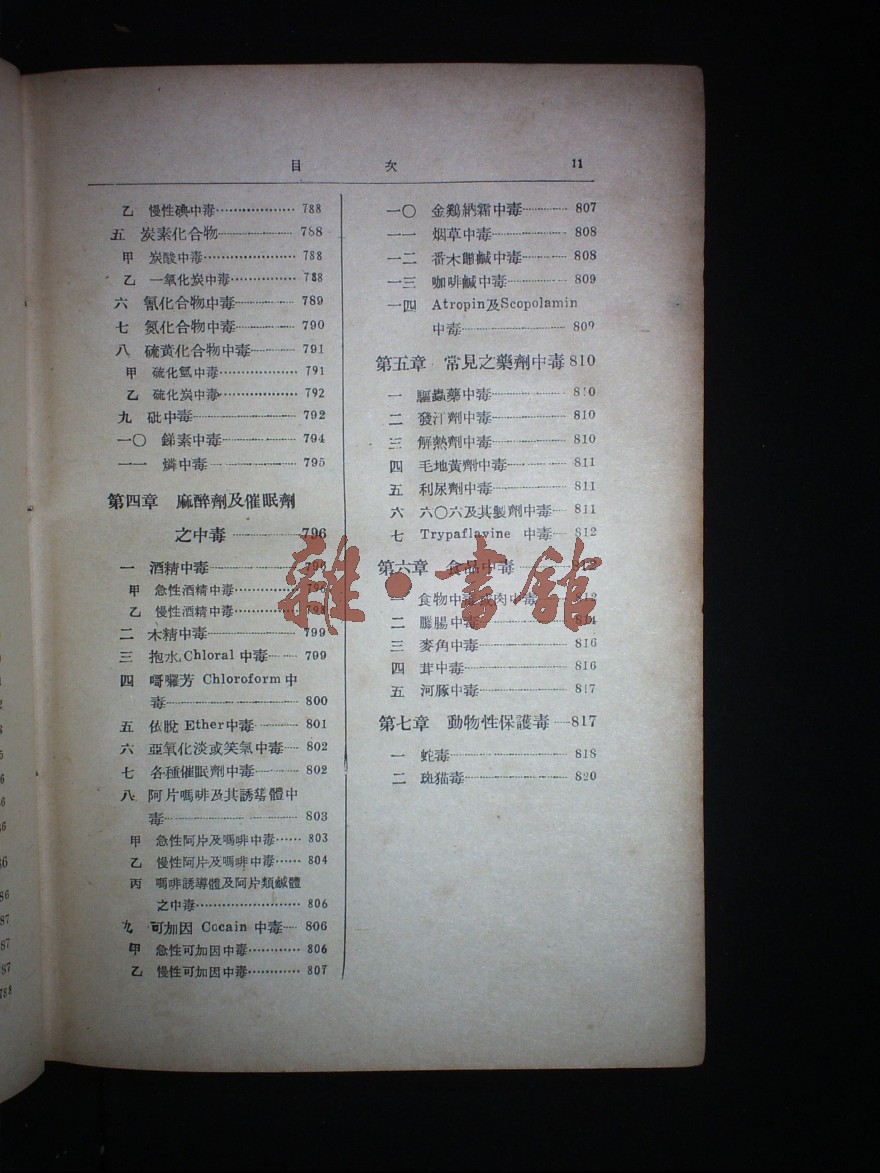 目 次 11
乙 慢性碘中毒 788
五 炭素化合物 788
甲 炭酸中毒 788
乙 一氧化炭中毒 788
六 氰化合物中毒 789
七 氮化合物中毒 790
八 硫黃化合物中毒 791
甲 硫化氫中毒 791
乙 硫化炭中毒 792
九 砒中毒 792
一〇 銻素中毒 794
一一 燐中毒 795
第四章 麻醉劑及催眠劑
之中毒 796
一 酒精中毒
甲 急性酒精中毒
乙 慢性酒精中毒 798
二 木精中毒 799
三 抱水Chloral 中毒 799
四 嚼囉芳 Chloroform 中
毒 800
五 依脫 Ether中毒 801
六 亞氧化淡或笑氣中毒 802
七 各種催眠劑中毒 802
八 阿片嗎啡及其誘導體中
毒 803
甲 急性阿片及嗎啡中毒 803
乙 慢性阿片及嗎啡中毒 804
丙 嗎啡誘導體及阿片類鹹體
之中毒 806
九 可加因 Cocain 中毒 806
甲 急性可加因中毒 806
乙 慢性可加因中毒 807
一〇 金鷄納霜中毒 807
一一 烟草中毒 808
一二 番木鼈鹹中毒 808
一三 咖啡鹹中毒 809
一四 Atropin及Scopolamin
中毒 809
第五章 常見之藥劑中毒 810
一 驅蟲藥中毒 810
二 發汗劑中毒 810
三 解熱劑中毒 810
四 毛地黃劑中毒 811
五 利尿劑中毒 811
六 六〇六及其製劑中毒 811
七 Trypaflavine 中毒 812
第六章 食品中毒 812
一 食物中毒或肉中毒 812
二 臘腸中毒 814
三 麥角中毒 816
四 茸中毒 816
五 河豚中毒 817
第七章 動物性保護毒 817
一 蛇毒 818
二 斑猫毒 820
雜·書館